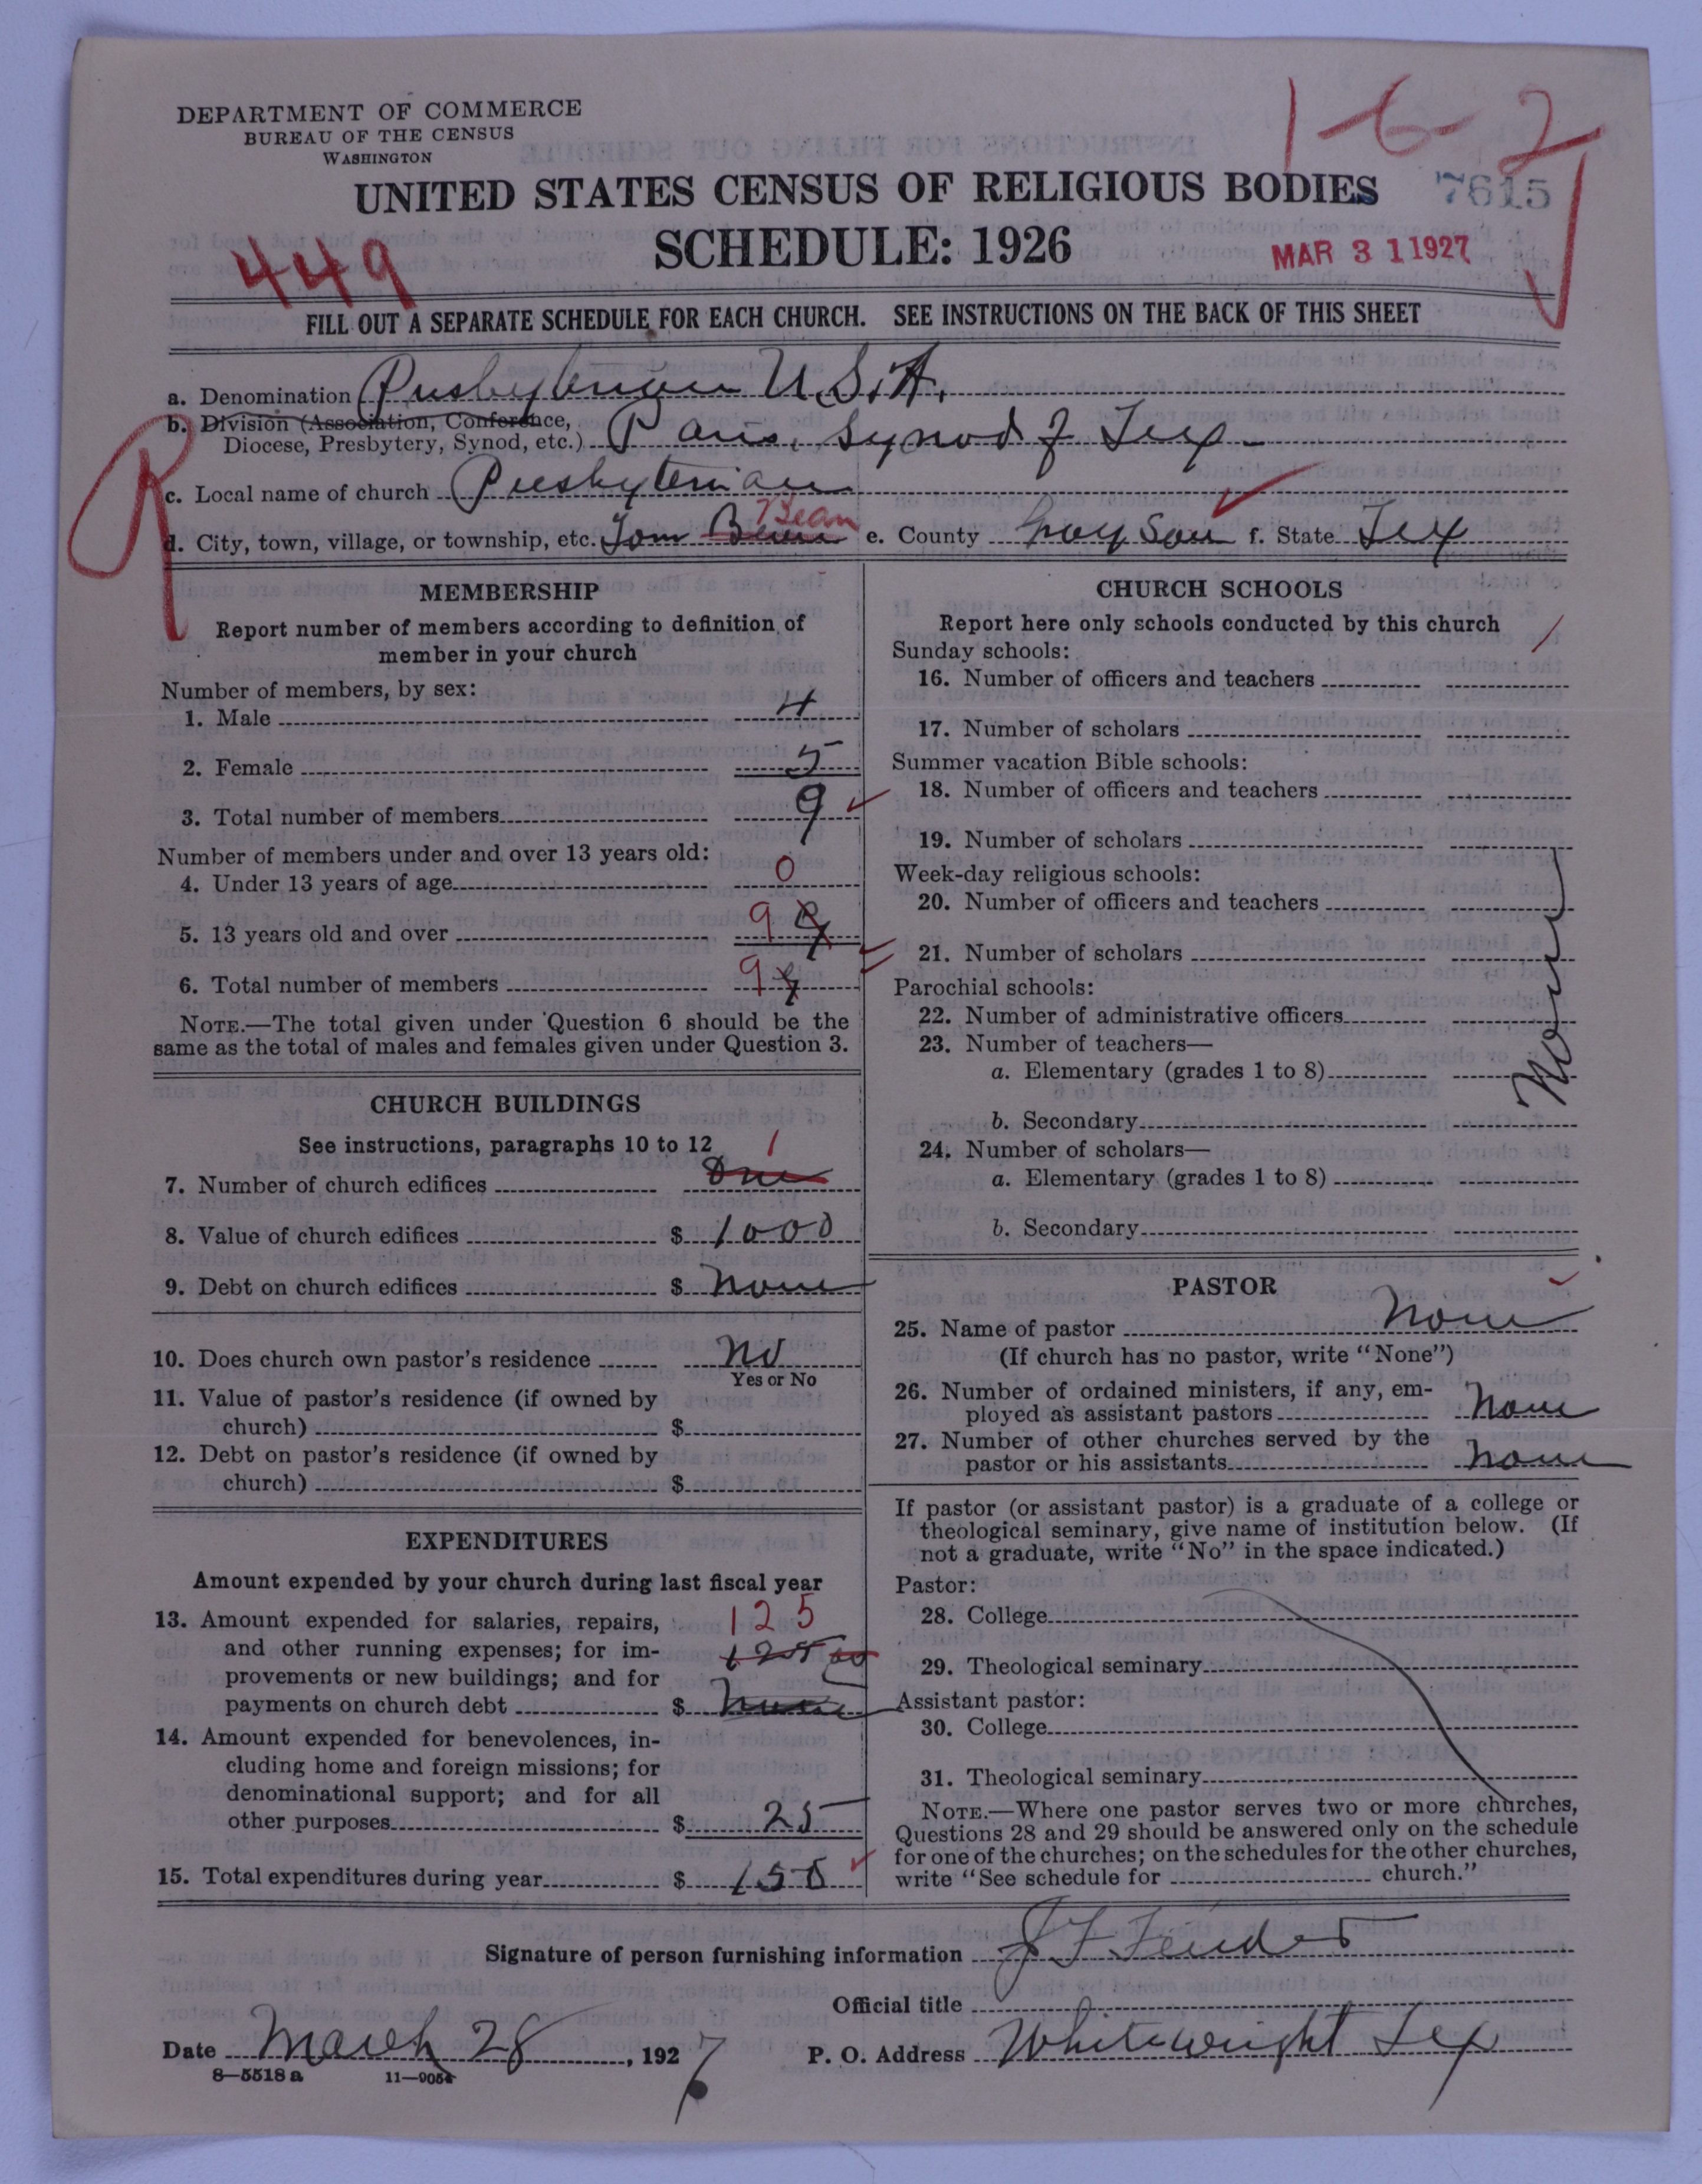 DEPARTMENT OF COMMERCE
BUREAU OF THE CENSUS
WASHINGTON
1-6-2
UNITED STATES CENSUS OF RELIGIOUS BODIES
7615
SCHEDULE: 1926
449
MAR 31 1927
FILL OUT A SEPARATE SCHEDULE FOR EACH CHURCH. SEE INSTRUCTIONS ON THE BACK OF THIS SHEET
a. Denomination Presbyterian U.S.A.
b. Division (Association, Conference,
Diocese, Presbytery, Synod, etc.) Paris, Synod of Tex-
R
c. Local name of church Presbyterian
Bean
d. City, town, village, or township, etc. Tom e. County Grayson f. State Tex
MEMBERSHIP
Report number of members according to definition of
member in your church
Number of members, by sex:
1. Male 4
2. Female 5
3. Total number of members 9
Number of members under and over 13 years old:
4. Under 13 years of age 0
5. 13 years old and over 9
6. Total number of members 9
NOTE.—The total given under Question 6 should be the
same as the total of males and females given under Question 3.
CHURCH BUILDINGS
See instructions, paragraphs 10 to 12
1
7. Number of church edifices One
8. Value of church edifices $ 1000
9. Debt on church edifices $ None
10. Does church own pastor's residence No
Yes or No
11. Value of pastor's residence (if owned by
church) $
12. Debt on pastor's residence (if owned by
church) $
EXPENDITURES
Amount expended by your church during last fiscal year
13. Amount expended for salaries, repairs, 125
and other running expenses; for im- 125 00
provements or new buildings; and for
payments on church debt $ None
14. Amount expended for benevolences, in-
cluding home and foreign missions; for
denominational support; and for all
other purposes $ 25
15. Total expenditures during year $ 150
CHURCH SCHOOLS
Report here only schools conducted by this church
Sunday schools:
16. Number of officers and teachers
17. Number of scholars
Summer vacation Bible schools:
18. Number of officers and teachers
19. Number of scholars
Week-day religious schools:
20. Number of officers and teachers
21. Number of scholars
None
Parochial schools:
22. Number of administrative officers
23. Number of teachers—
a. Elementary (grades 1 to 8)
b. Secondary
24. Number of scholars—
a. Elementary (grades 1 to 8)
b. Secondary
PASTOR
25. Name of pastor None
(If church has no pastor, write "None")
26. Number of ordained ministers, if any, em-
ployed as assistant pastors None
27. Number of other churches served by the
pastor or his assistants None
If pastor (or assistant pastor) is a graduate of a college or
theological seminary, give name of institution below. (If
not a graduate, write "No" in the space indicated.)
Pastor:
28. College
29. Theological seminary
Assistant pastor:
30. College
31. Theological seminary
NOTE.—Where one pastor serves two or more churches,
Questions 28 and 29 should be answered only on the schedule
for one of the churches; on the schedules for the other churches,
write "See schedule for church."
Signature of person furnishing information
Official title
Date March 28, 1927 P. O. Address Whitewright Tex
8—5518 a 11—9054